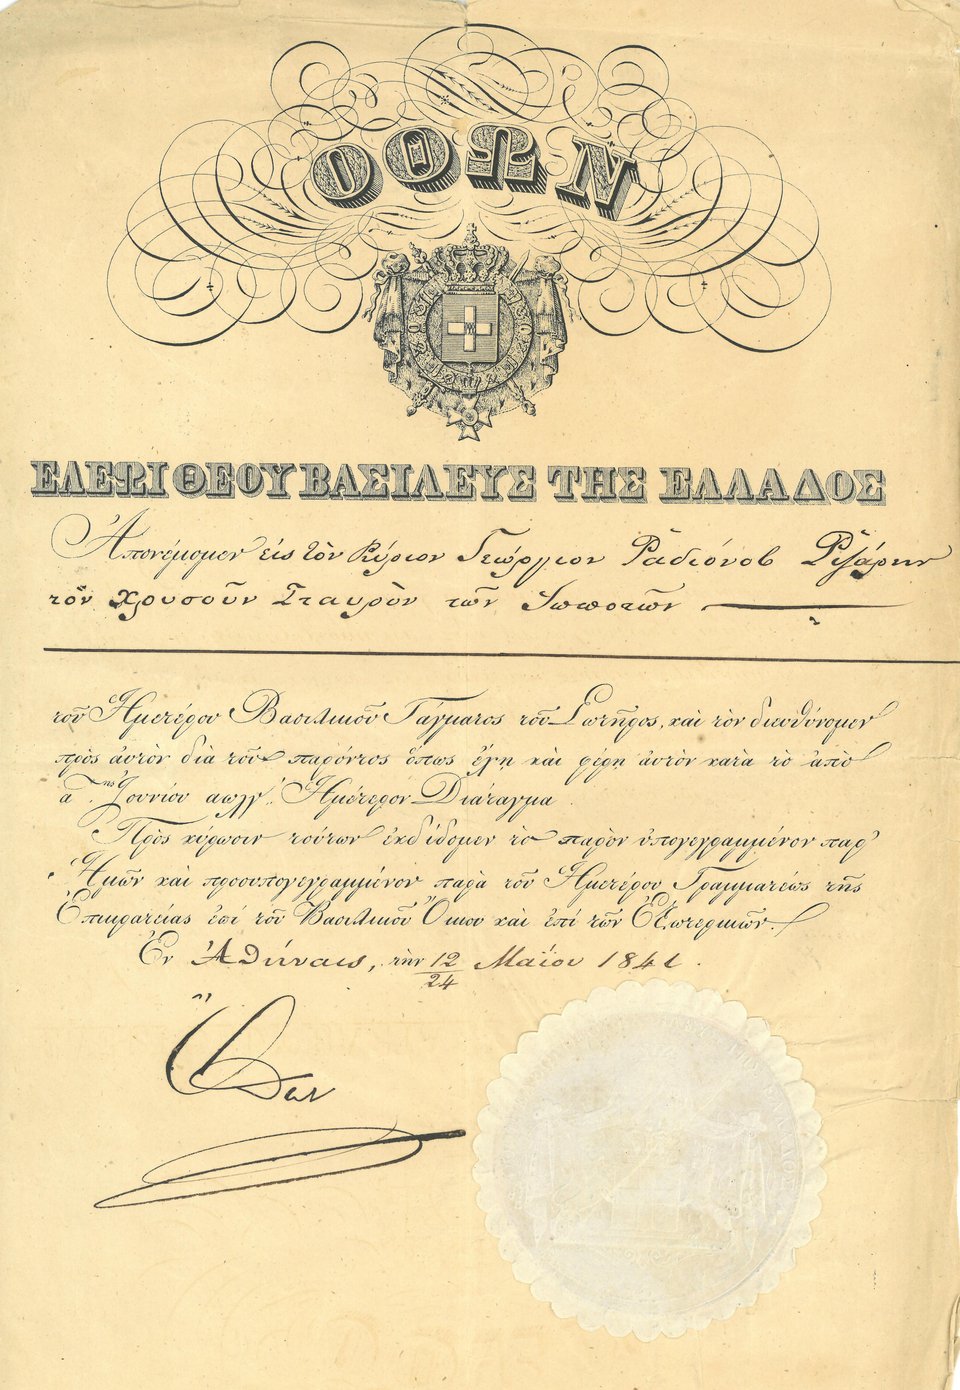 ΟΘΩΝ
ΕΛΕΩι ΘΕΟΥ ΒΑΣΙΛΕΥΣ ΤΗΣ ΕΛΛΑΔΟΣ
Ἀπονέμομεν εἰς τὸν Κύριον Γεώργιον Ῥαδιόνοβ Ῥιζάρην
τὸν Χρυσοῦν Σταυρὸν τῶν Ἱπποτῶν
τοῦ Ἡμετέρου Βασιλικοῦ Τάγματος τοῦ Σωτῆρος, καὶ τὸν διευθύνομεν
πρὸς αὐτὸν διὰ τοῦ παρόντος ὅπως ἔχῃ καὶ φέρῃ αὐτὸν κατὰ τὸ ἀπὸ
ά. της Ἰουνίου αωλγ΄. Ἡμέτερον Διάταγμα.
Πρὸς κύρωσιν τούτων ἐκδίδομεν τὸ παρὸν ὑπογεγραμμένον παρ'
Ἡμῶν καὶ προσυπογεγραμμένον παρὰ τοῦ Ἡμετέρου Γραμματέως τῆς
Ἐπικρατείας ἐπὶ τοῦ Βασιλικοῦ Οἴκου καὶ ἐπὶ τῶν Ἐξωτερικῶν.
Ἐν Ἀθήναις, τὴν 12/24 Μαΐου 1841.
Ὄθων